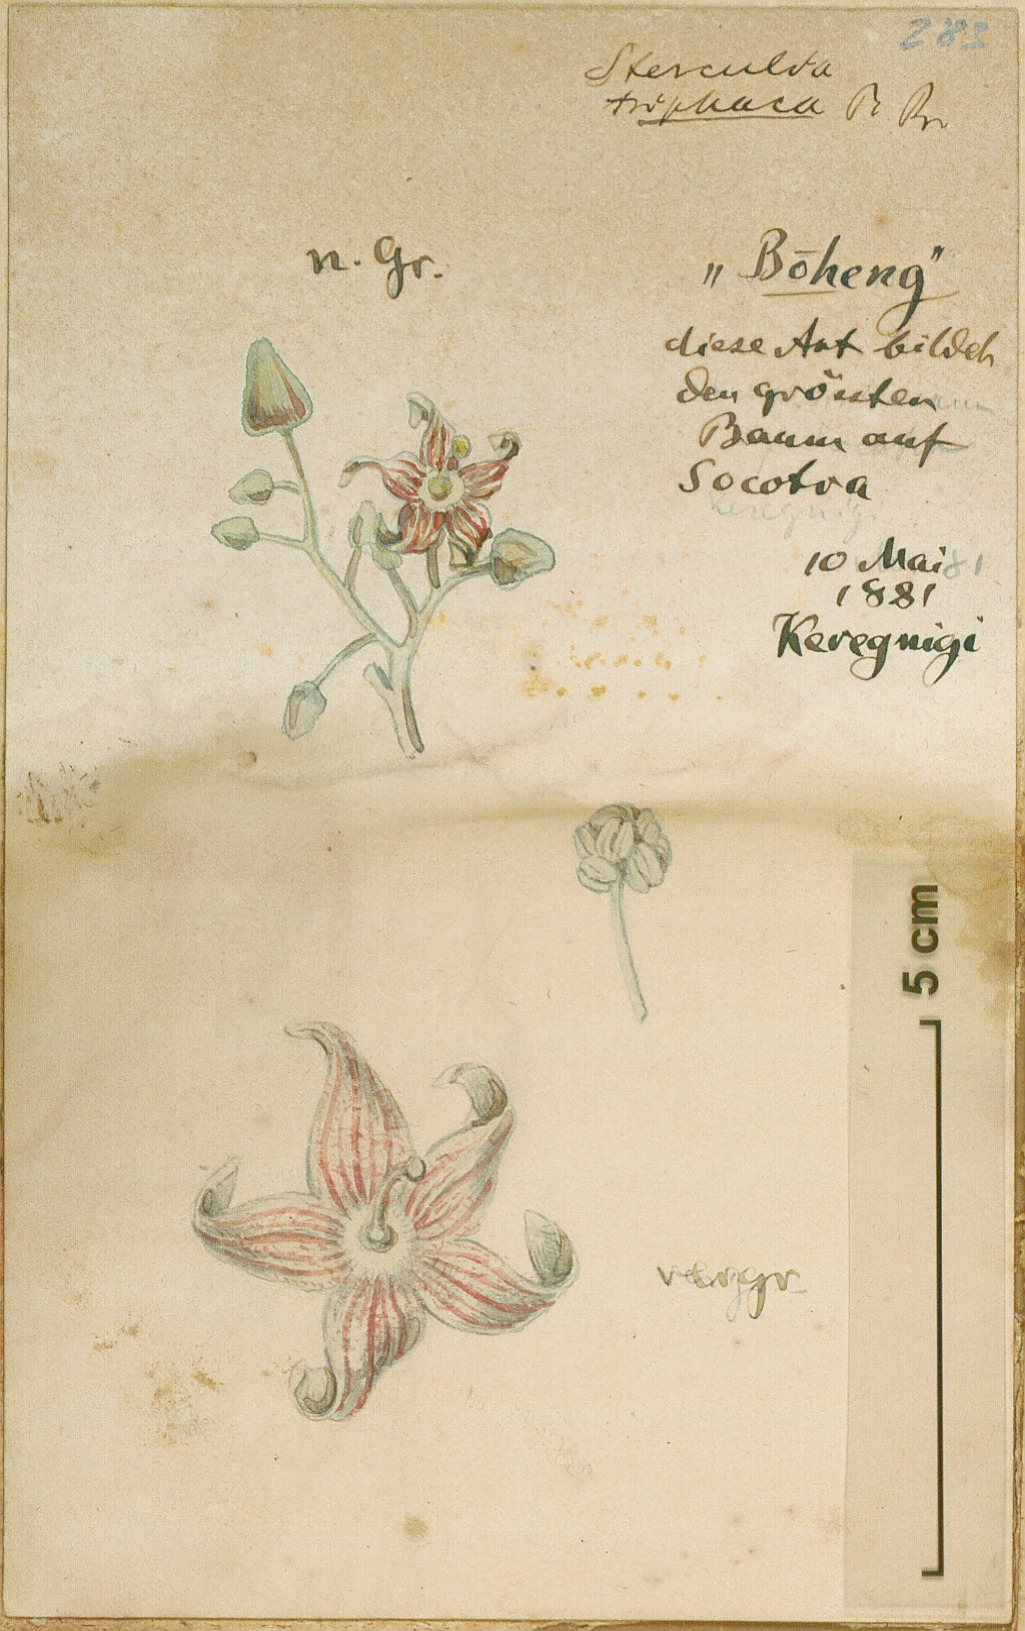 283
Sterculia
triphaca R Br
n. Gr.
„Bōheng"
diese Art bildet
den grössten
Baum auf
Socotra
10 Mai
1881
Keregnigi
vergr.
5 cm